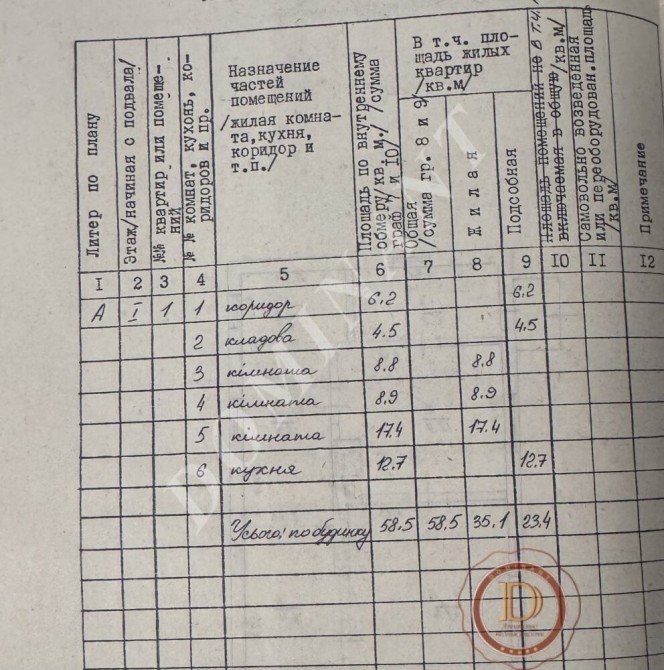 Литер по плану
Этаж/начиная с подвала/
№№ квартир или помеще-
ний
№ № комнат, кухонь, ко-
ридоров и пр.
Назначение
частей
помещений
/жилая комна-
та, кухня,
коридор и
т.п./
Площадь по внутреннему
обмеру/кв.м./ /сумма
граф 7 и 10/
В т.ч. пло-
щадь жилых
квартир
/кв.м/
Общая
/сумма гр. 8 и 9/
Жилая
Подсобная
Площадь помещений не
включаемая в общую/кв.м/
В т.ч.
Самовольно возведенная
или переоборудован.площадь
/кв.м/
Примечание
I 2 3 4 5 6 7 8 9 IO II I2
А I 1 1 коридор 6.2 6.2
2 кладова 4.5 4.5
3 кімната 8.8 8.8
4 кімната 8.9 8.9
5 кімната 17.4 17.4
6 кухня 12.7 12.7
Усього: по будинку 58.5 58.5 35.1 23.4
DOMINANT
D